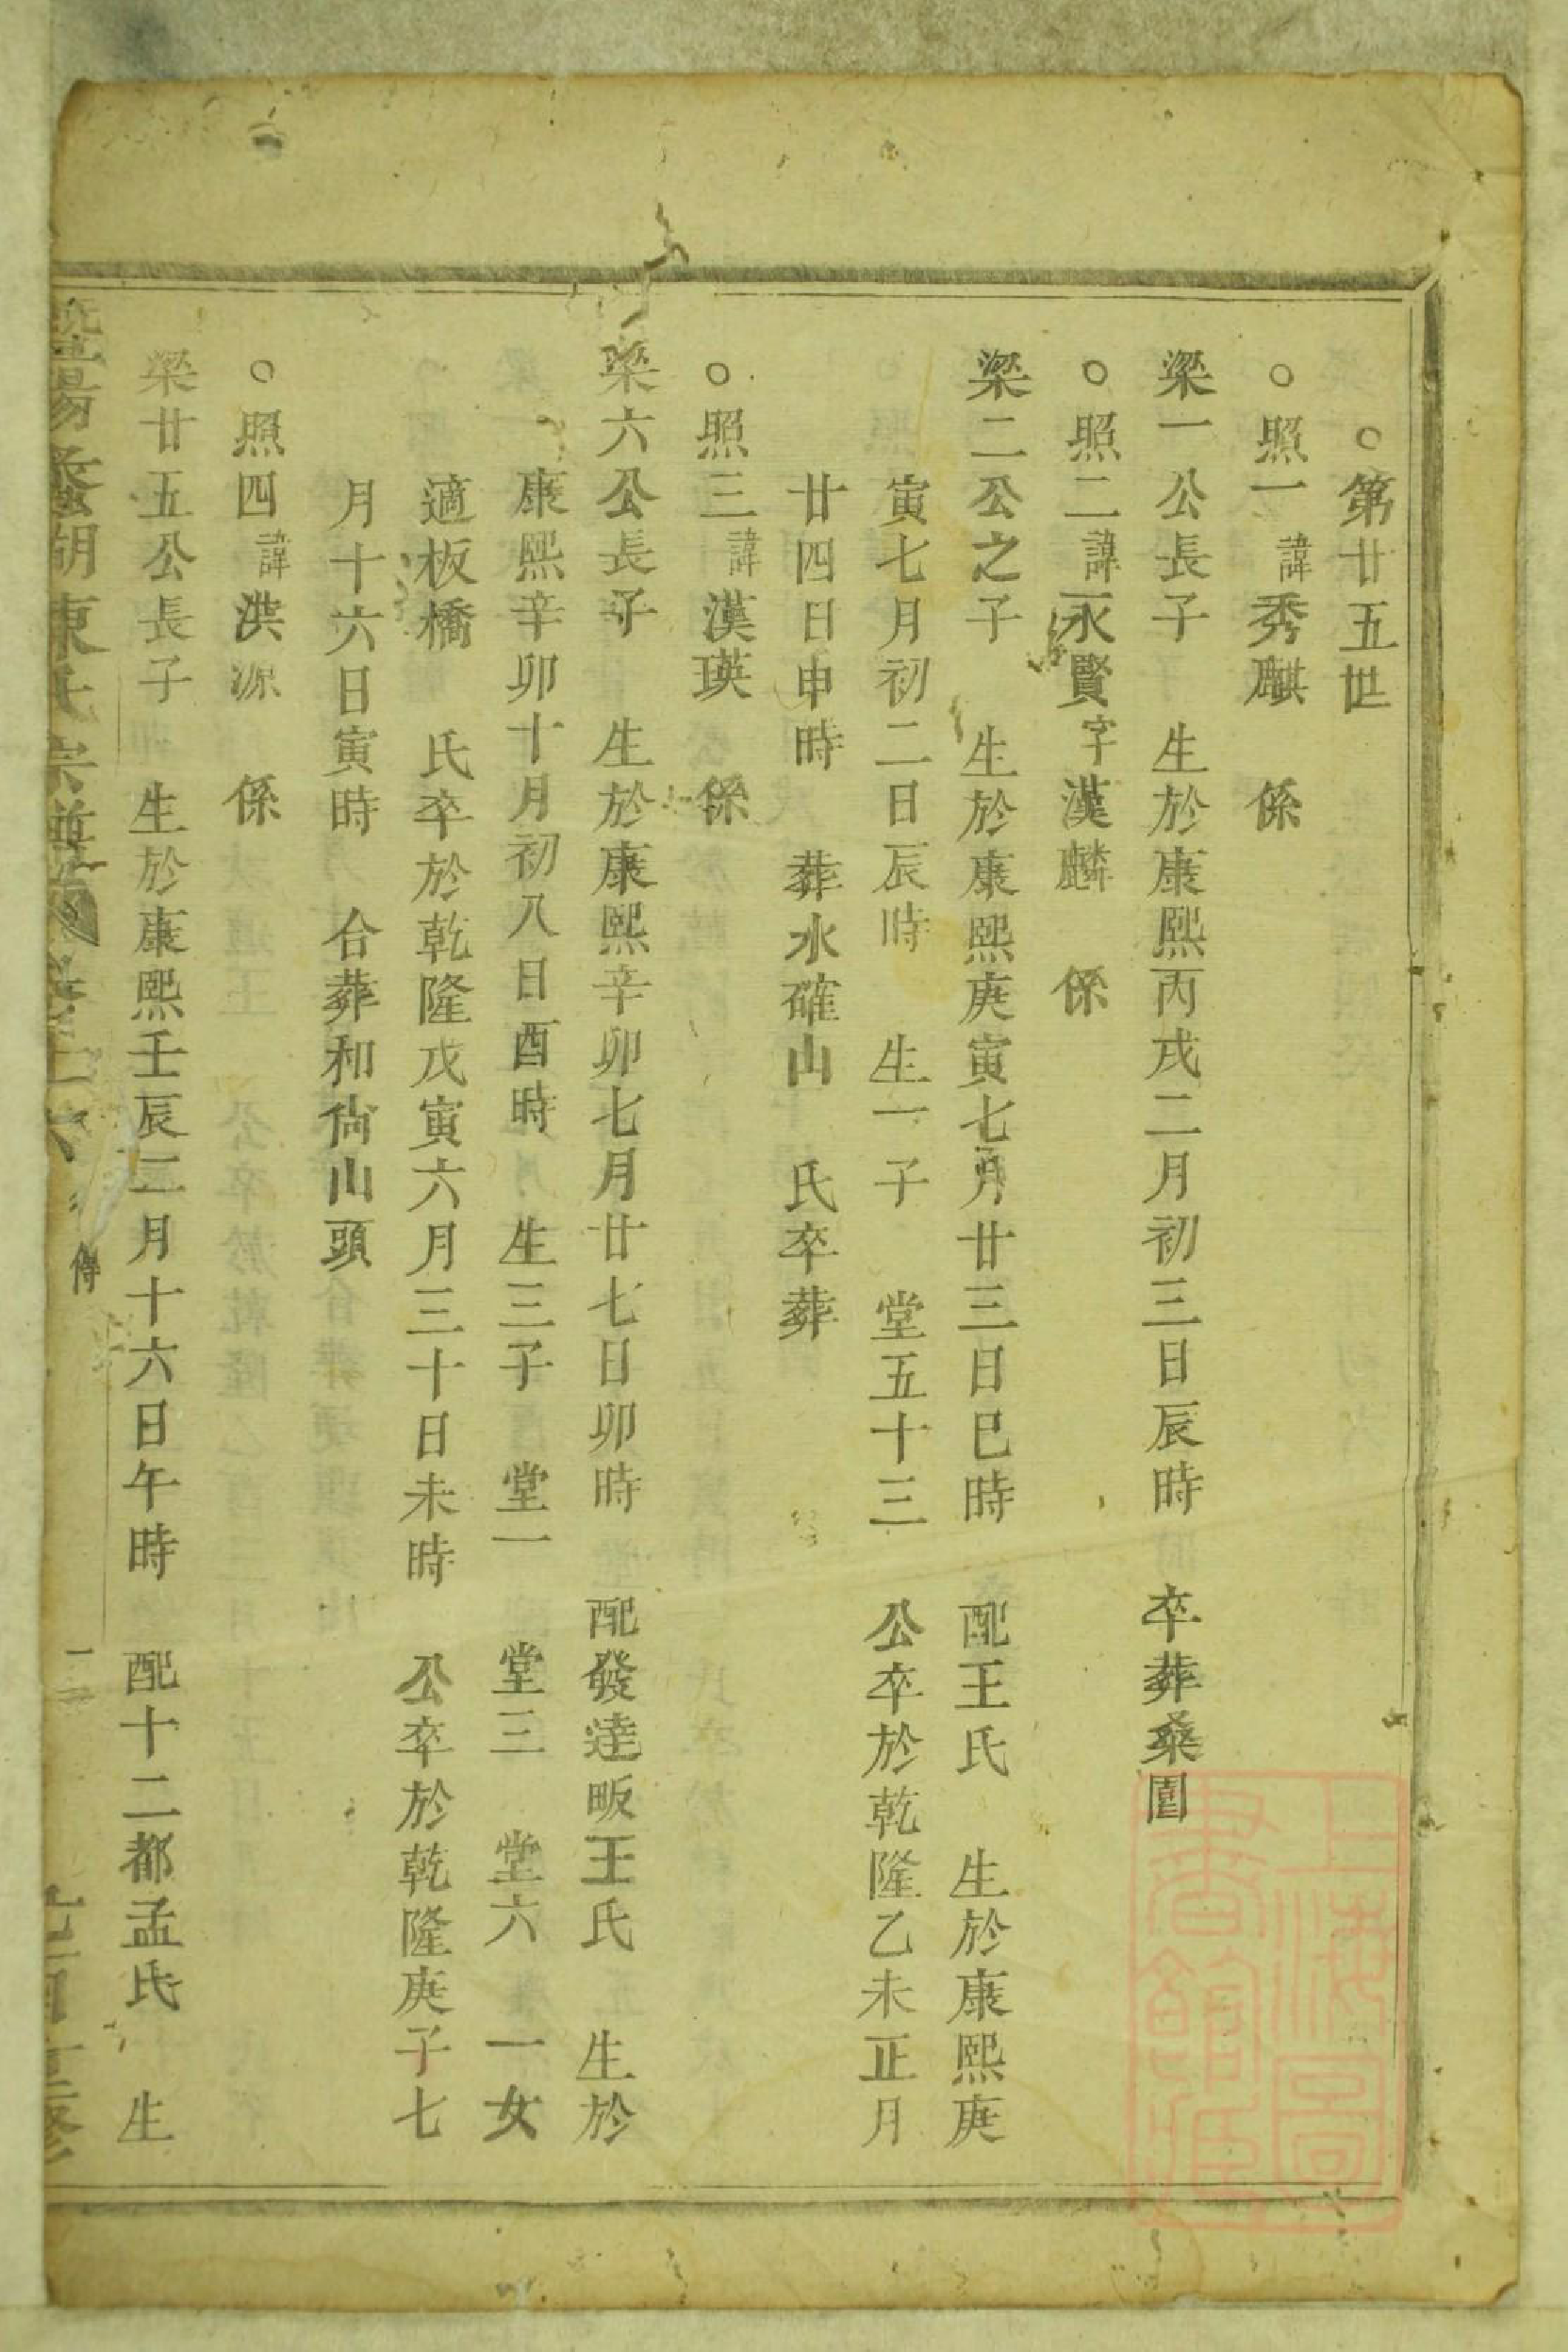 ○第廿五世
○照一諱秀麒　係
梁一公長子　生於康熙丙戌二月初三日辰時　卒葬桑園
○照二諱永賢字漢麟　係
梁二公之子　生於康熙庚寅七月廿三日巳時　配王氏　生於康熙庚
寅七月初二日辰時　生一子　堂五十三　公卒於乾隆乙未正月
廿四日申時　葬水確山　氏卒葬
○照三諱漢瑛　係
梁六公長子　生於康熙辛卯七月廿七日卯時　配發達畈王氏　生於
康熙辛卯十月初八日酉時　生三子　堂一　堂三　堂六　一女
適板橋　氏卒於乾隆戊寅六月三十日未時　公卒於乾隆庚子七
月十六日寅時　合葬和尙山頭
○照四諱洪源　係
梁廿五公長子　生於康熙壬辰二月十六日午時　配十二都孟氏　生
暨陽 湖東氏宗譜 傳
上海圖書館藏